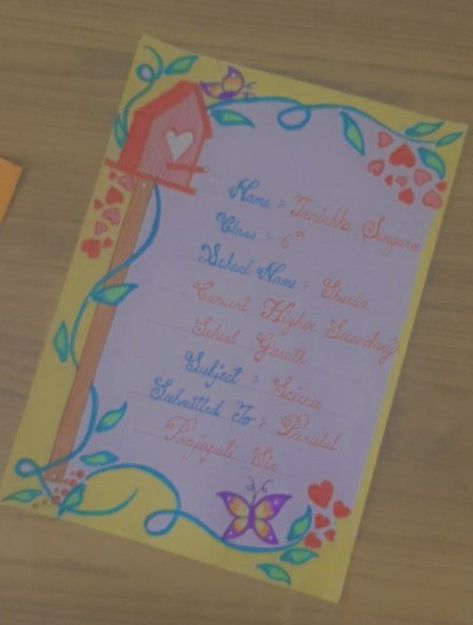 Name :- Tanishka Songara
Class :- 6th
School Name : Sharda
Convent Higher Secondary
School Garoth
Subject :- Science
Submitted To :-
Prajapati Sir